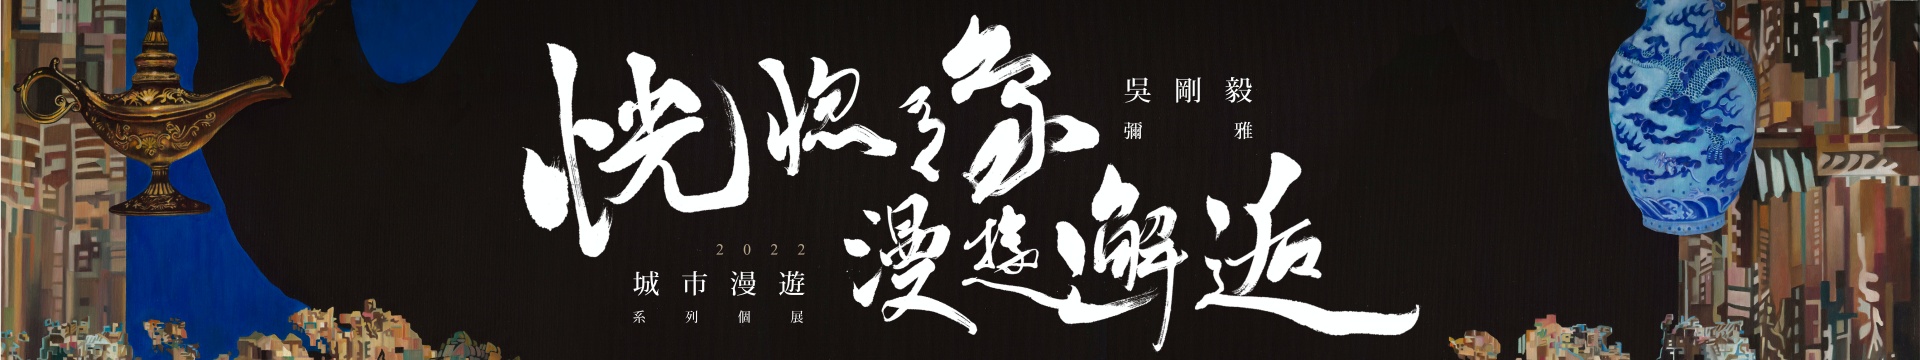 恍惚之象
吳剛毅
彌雅
漫邂逅
2022
城市漫遊
系列個展